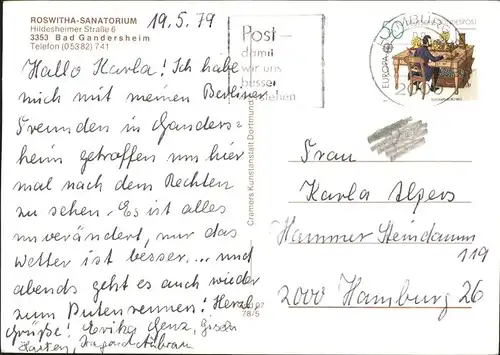 ROSWITHA-SANATORIUM
Hildesheimer Straße 6
3353 Bad Gandersheim
Telefon (05382) 741
19.5.79
Hallo Karla! Ich habe
mich mit meinen Berliner
Freunden in Ganders-
heim getroffen um hier
mal nach dem Rechten
zu sehen. Es ist alles
unverändert, nur das
Wetter ist besser... und
abends geht es auch wieder
zum Putenrennen! Herzl.
Grüße! Erika Genz, Gisela
Irmgard
Cramers Kunstanstalt Dortmund
07
78/5
Post-
damit
wir uns
besser
verstehen
HAMBURG
2000
EUROPA
Frau
Karla Alpers
Hammer Steindamm
119
2000 Hamburg 26